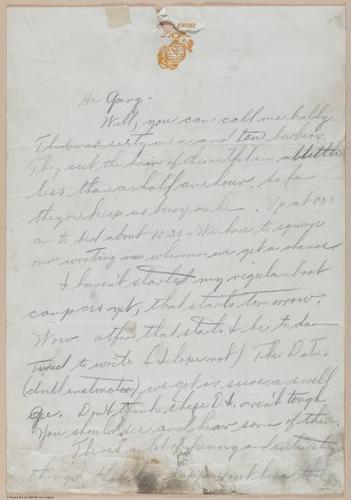 Hi Gang.
Well, you can call me baldy.
There was sixty men and ten barbers.
They cut the hair of the outfit in a little
less than a half an hour. So far
they're keep us busy as h . Up at 5:00
an to bed about 10:30 - We have to squeeze
our writing in whenever we get a chance
I haven't started my regular boot
camp as yet, that starts tomorrow,
Wow. after that starts I'll be to darn
tired to write (I hope not) The D.I.
(drill instructor) we got is sure a swell
Gee. Don't think these D.I. aren't tough
You should see and hear some of them.
There's a lot of funny and interesting
things